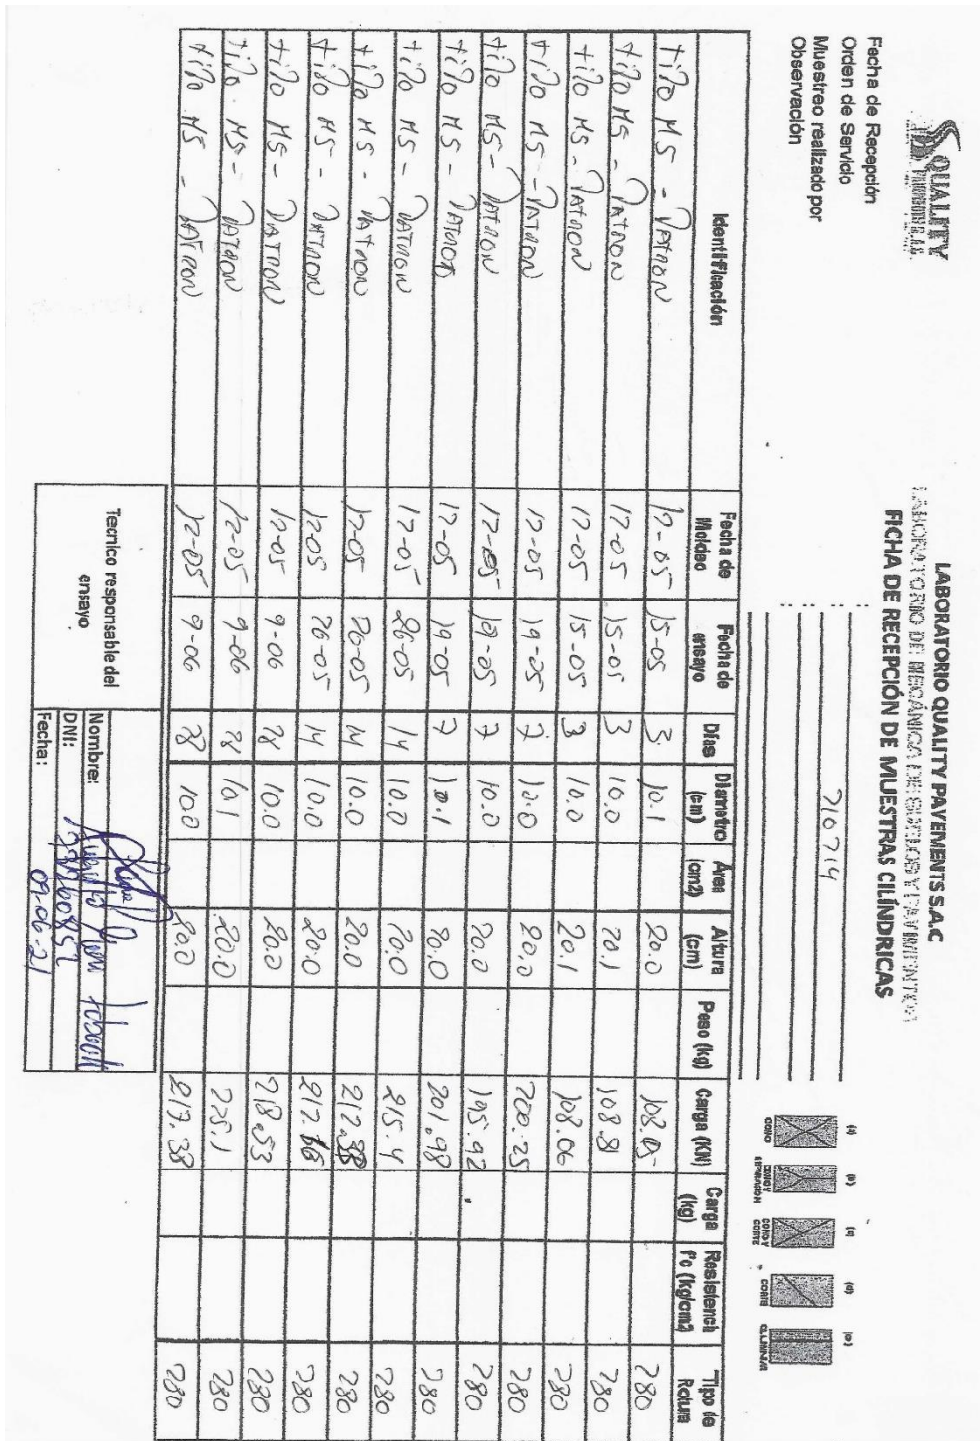 QUALITY PAVEMENTS
LABORATORIO QUALITY PAVEMENTS S.A.C
LABORATORIO DE MECÁNICA DE SUELOS Y PAVIMENTOS
FICHA DE RECEPCIÓN DE MUESTRAS CILÍNDRICAS
Fecha de Recepción :
Orden de Servicio : 210714
Muestreo realizado por :
Observación :
(a) (b) (c) (d) (e)
CONO CONO Y SEPARACIÓN CONO Y CORTE CORTE COLUMNAR
Identificación Fecha de Moldeo Fecha de ensayo Días Diametro (cm) Área (cm2) Altura (cm) Peso (kg) Carga (KN) Carga (kg) Resistench f'c (kg/cm2) Tipo de Rotura
tipo MS - Patron 12-05 15-05 3 10.1 20.0 108.05 280
tipo MS - Patron 12-05 15-05 3 10.0 20.1 108.81 280
tipo MS - Patron 12-05 15-05 3 10.0 20.1 108.06 280
tipo MS - Patron 12-05 19-05 7 10.0 20.0 200.25 280
tipo MS - Patron 12-05 19-05 7 10.0 20.0 195.92 280
tipo MS - Patron 12-05 19-05 7 10.1 20.0 201.98 280
tipo MS - Patron 12-05 26-05 14 10.0 20.0 215.4 280
tipo MS - Patron 12-05 26-05 14 10.0 20.0 212.38 280
tipo MS - Patron 12-05 26-05 14 10.0 20.0 217.66 280
tipo MS - Patron 12-05 9-06 28 10.0 20.0 218.53 280
tipo MS - Patron 12-05 9-06 28 10.1 20.0 225.1 280
tipo MS - Patron 12-05 9-06 28 10.0 20.0 217.38 280
Tecnico responsable del ensayo
Nombre:
DNI:
Fecha: 09-06-21